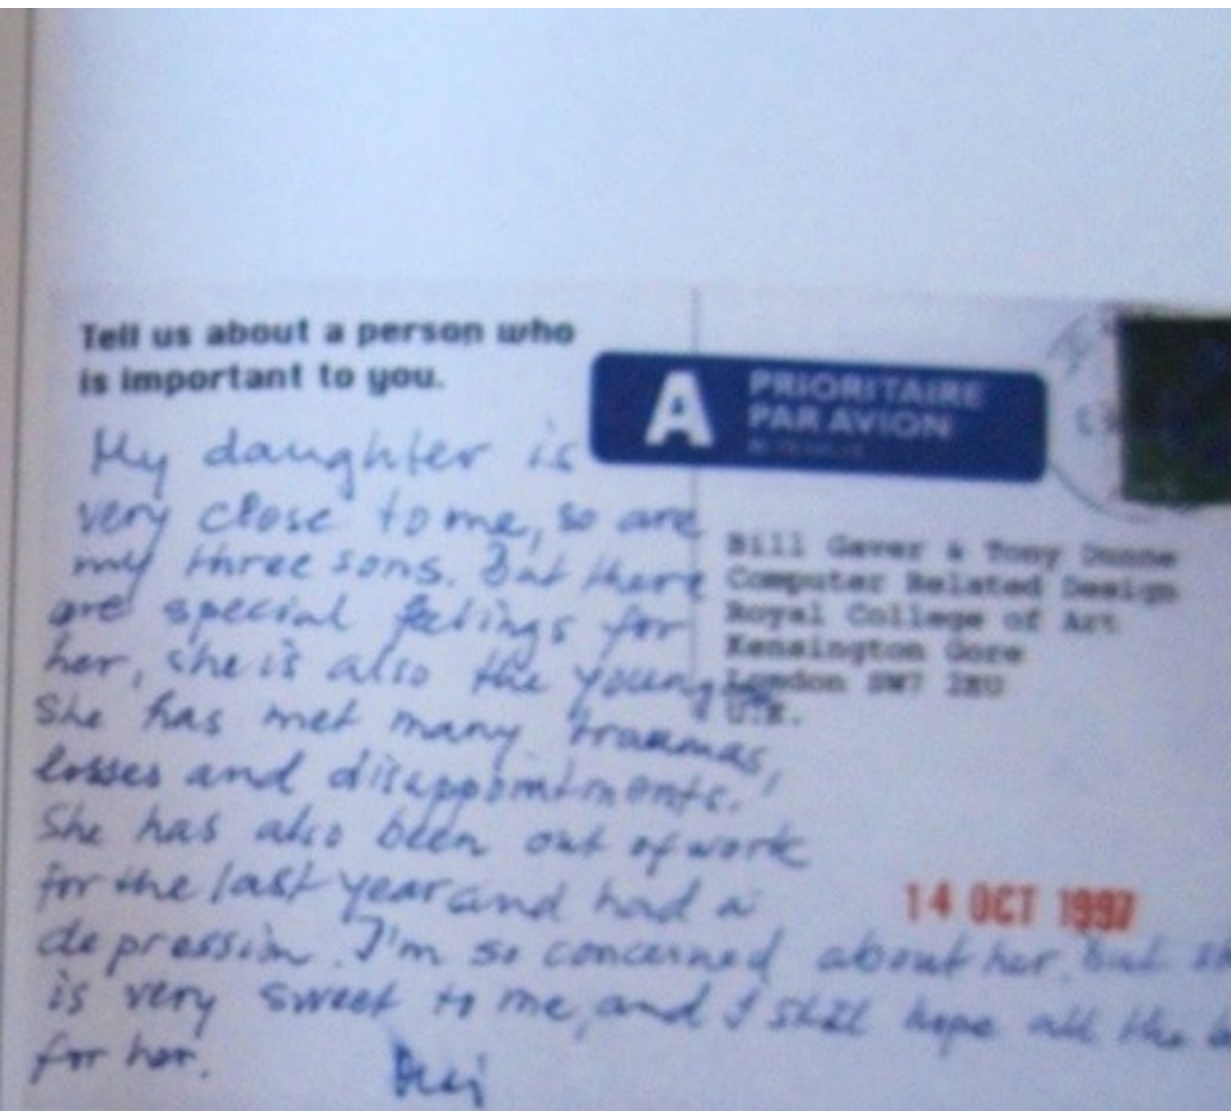 Tell us about a person who
is important to you.
My daughter is
very close to me, so are
my three sons. But there
are special feelings for
her, she is also the
She has met many traumas,
losses and disappointments.
She has also been out of work
for the last year and had a
depression. I'm so concerned about her. But
is very sweet to me, and I still hope all the
for her.
A
PRIORITAIRE
PAR AVION
Bill Gaver & Tony Dunne
Computer Related Design
Royal College of Art
Kensington Gore
London SW7 2EU
U.K.
14 OCT 1997